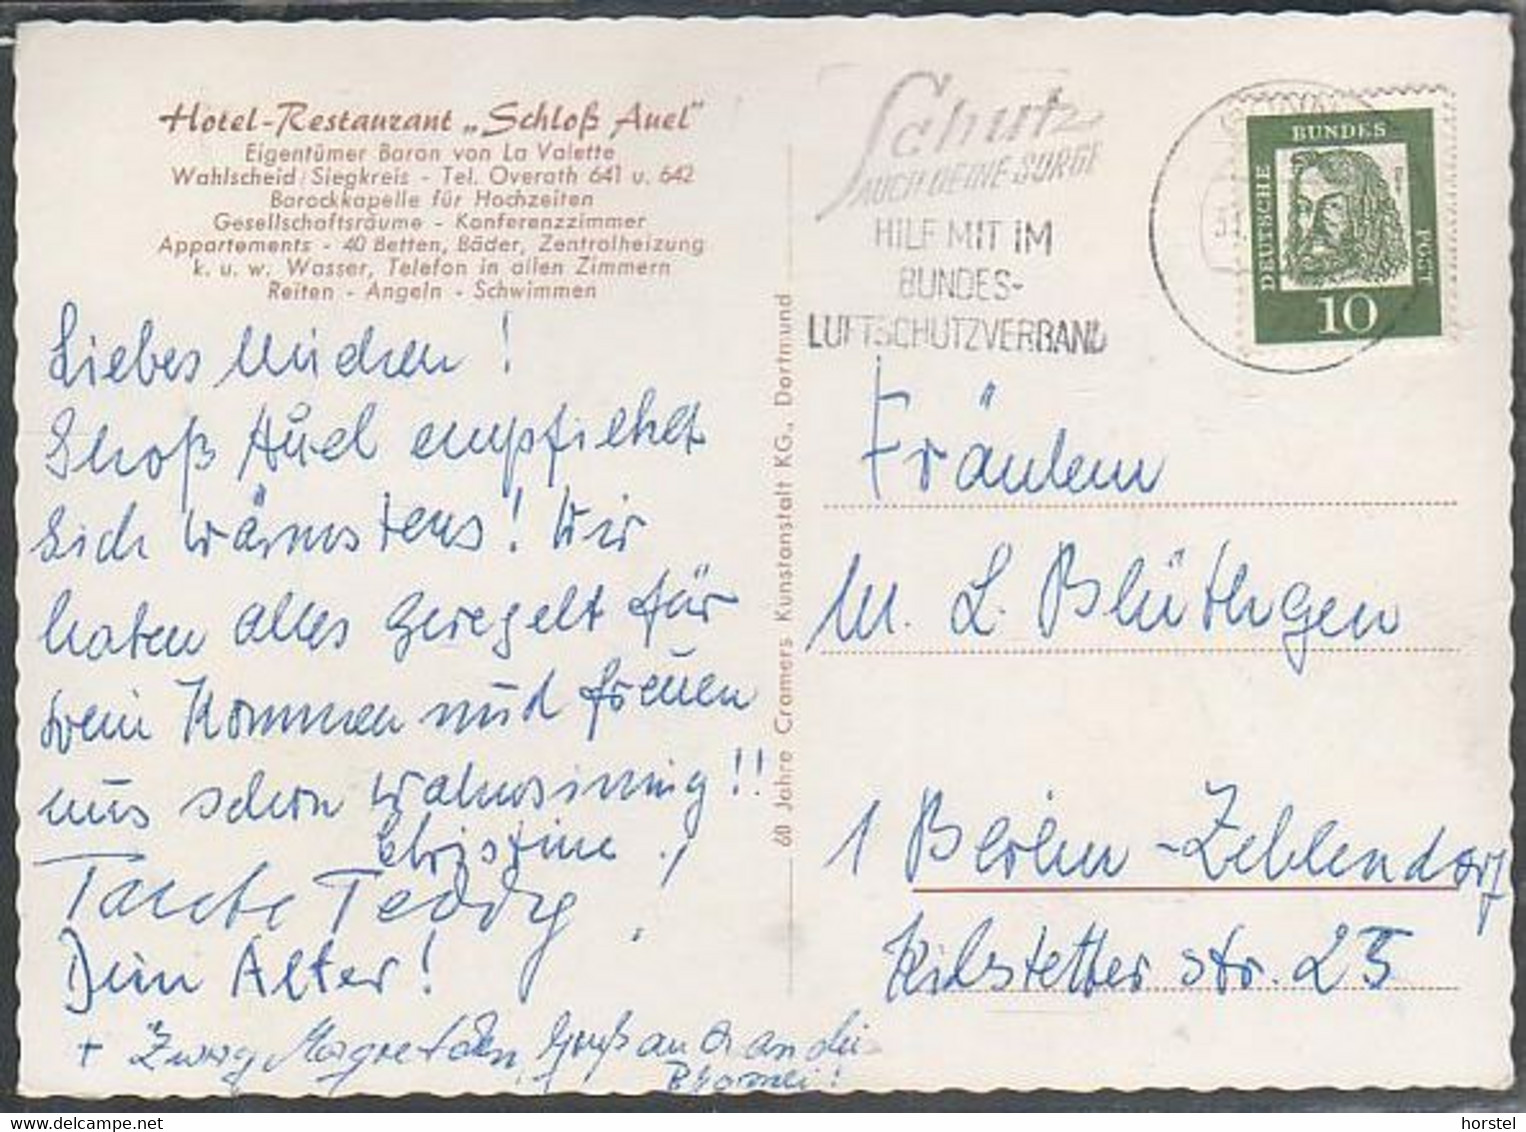 Hotel-Restaurant „Schloß Auel"
Eigentümer Baron von La Valette
Wahlscheid/Siegkreis - Tel. Overath 641 u. 642
Barockkapelle für Hochzeiten
Gesellschaftsräume - Konferenzzimmer
Appartements - 40 Betten, Bäder, Zentralheizung
k. u. w. Wasser, Telefon in allen Zimmern
Reiten - Angeln - Schwimmen
Liebes !
Shoß Auel empfiehlt
sich wärmstens! Wir
haben alles geregelt für
Dein Kommen und freuen
uns schon wahnsinnig!!
Christine!
Tante Teddy!
Dein Alter!
+ Zwerg Margretchen, Gruß an die
60 Jahre Cramers Kunstanstalt KG., Dortmund
Schutz
AUCH DEINE SORGE
HILF MIT IM
BUNDES-
LUFTSCHUTZVERBAND
DEUTSCHE
BUNDES
POST
10
Fräulein
M. L. Blüthgen
1 Berlin-Zehlendorf
Kilstetter Str. 25
horstel